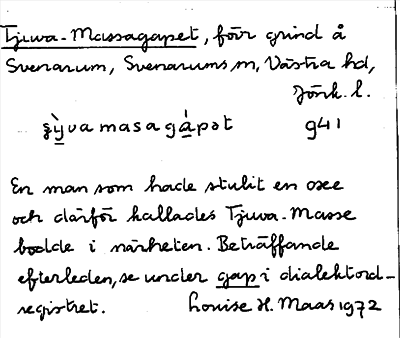 Tjuva-Massagapet, förr grind å
Svenarum, Svenarums sn, Västra hd,
Jönk. l.
ʂỳva masagápət 941
En man som hade stulit en oxe
och därför kallades Tjuva-Masse
bodde i närheten. Beträffande
efterleden, se under gap i dialektord-
registret. Louise H. Maas 1972